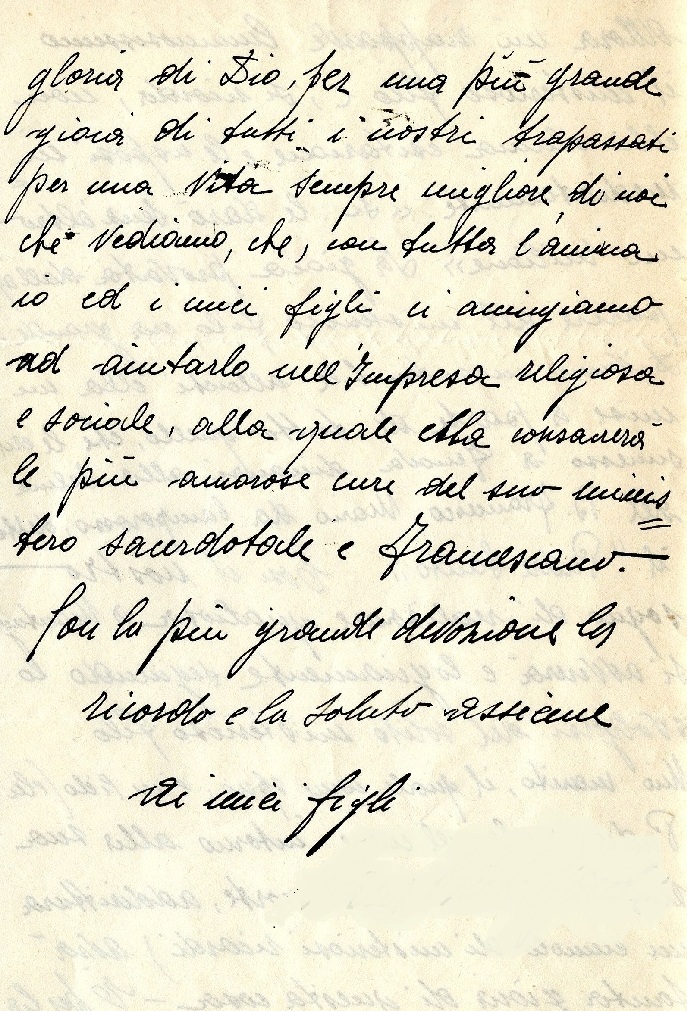 gloria di Dio, per una più grande
gioia di tutti i nostri trapassati
per una vita sempre migliore di noi
che vediamo, che, con tutta l'anima
io ed i miei figli ci accingiamo
ad aiutarlo nell'Impresa religiosa
e sociale, alla quale ella consacrerà
le più amorose cure del suo minis
tero sacerdotale e Francescano.—
Con la più grande devozione la
ricordo e la saluto assieme
ai miei figli